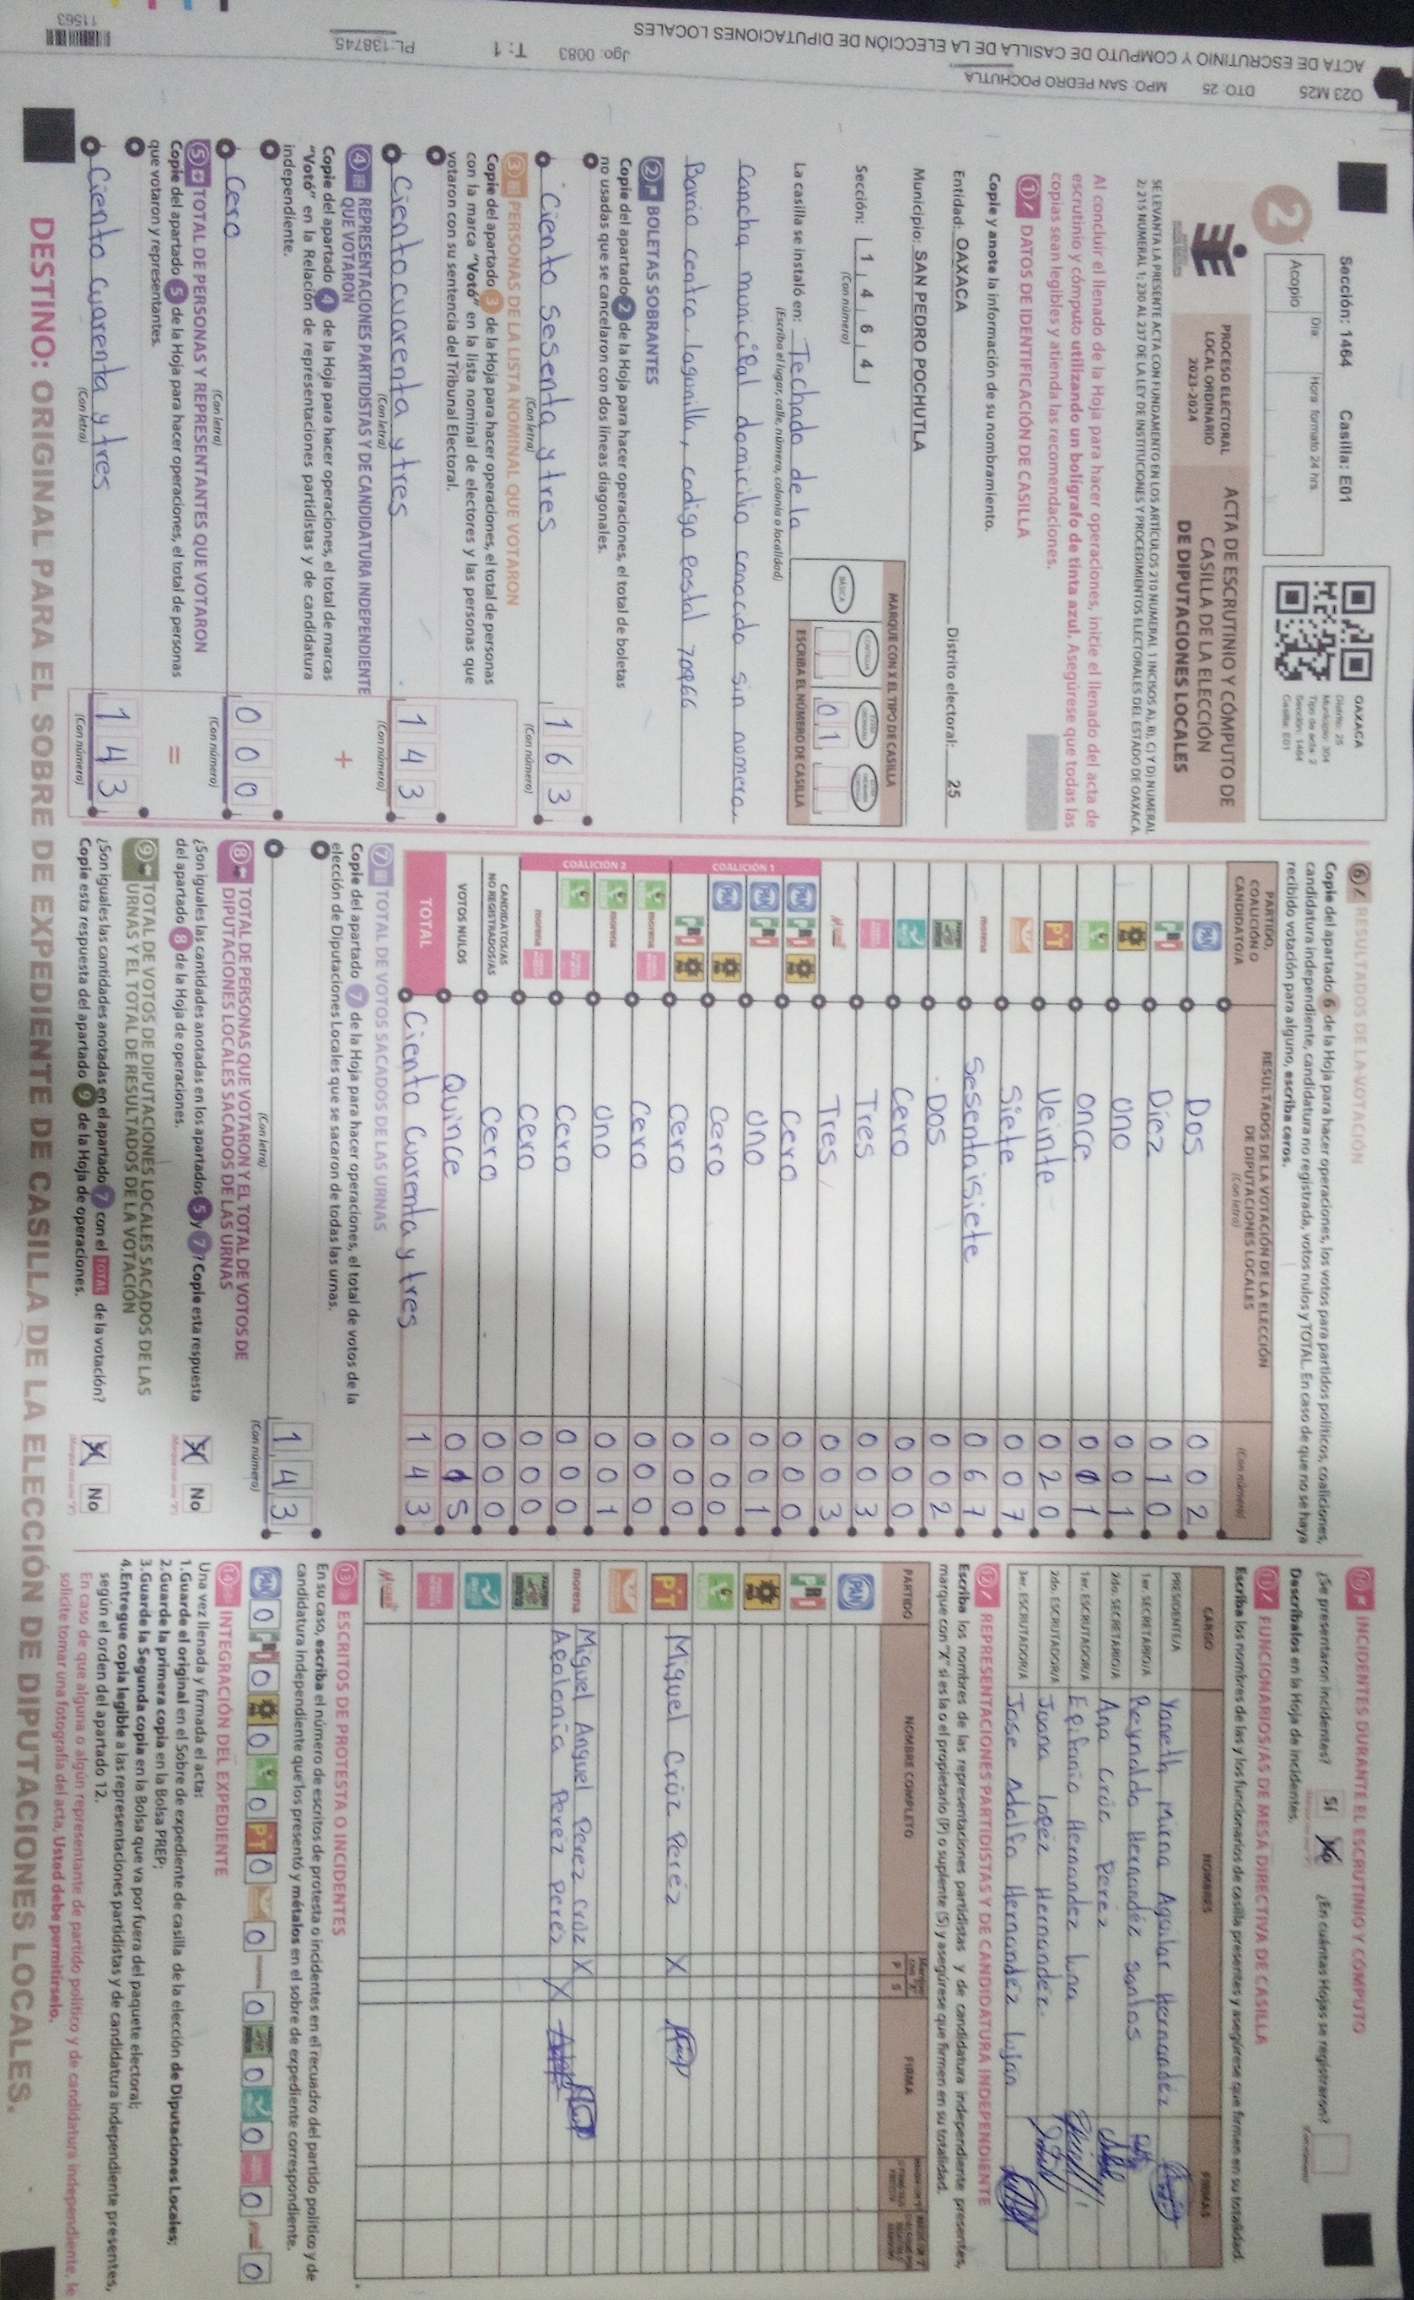 O23 M25 DTO: 25 MPO: SAN PEDRO POCHUTLA
ACTA DE ESCRUTINIO Y COMPUTO DE CASILLA DE LA ELECCIÓN DE DIPUTACIONES LOCALES
Jgo: 0083 T: 1 PL:138745
11563
Sección: 1464 Casilla: E01
Día Hora: formato 24 hrs
Acopio
2
OAXACA
Distrito: 25
Municipio: 304
Tipo de acta: 2
Sección: 1464
Casilla: E01
PROCESO ELECTORAL
LOCAL ORDINARIO
2023-2024
ACTA DE ESCRUTINIO Y CÓMPUTO DE
CASILLA DE LA ELECCIÓN
DE DIPUTACIONES LOCALES
SE LEVANTA LA PRESENTE ACTA CON FUNDAMENTO EN LOS ARTÍCULOS 210 NUMERAL 1 INCISOS A), B), C) Y D) NUMERAL
2; 215 NUMERAL 1; 230 AL 237 DE LA LEY DE INSTITUCIONES Y PROCEDIMIENTOS ELECTORALES DEL ESTADO DE OAXACA.
Al concluir el llenado de la Hoja para hacer operaciones, inicie el llenado del acta de
escrutinio y cómputo utilizando un bolígrafo de tinta azul. Asegúrese que todas las
copias sean legibles y atienda las recomendaciones.
1 DATOS DE IDENTIFICACIÓN DE CASILLA
Copie y anote la información de su nombramiento.
Entidad: OAXACA Distrito electoral: 25
Municipio: SAN PEDRO POCHUTLA
Sección: 1 4 6 4
(Con número)
MARQUE CON X EL TIPO DE CASILLA
BÁSICA
0 1
ESCRIBA EL NÚMERO DE CASILLA
La casilla se instaló en: Techado de la
(Escriba el lugar, calle, número, colonia o localidad)
cancha municipal domicilio conocido sin numero
Barrio centro, lagunilla, codigo postal 70966
2 BOLETAS SOBRANTES
Copie del apartado 2 de la Hoja para hacer operaciones, el total de boletas
no usadas que se cancelaron con dos líneas diagonales.
Ciento sesenta y tres 1 6 3
(Con letra) (Con número)
3 PERSONAS DE LA LISTA NOMINAL QUE VOTARON
Copie del apartado 3 de la Hoja para hacer operaciones, el total de personas
con la marca "Votó" en la lista nominal de electores y las personas que
votaron con su sentencia del Tribunal Electoral.
Ciento cuarenta y tres 1 4 3
(Con letra) (Con número)
4 REPRESENTACIONES PARTIDISTAS Y DE CANDIDATURA INDEPENDIENTE
QUE VOTARON +
Copie del apartado 4 de la Hoja para hacer operaciones, el total de marcas
"Votó" en la Relación de representaciones partidistas y de candidatura
independiente.
Cero 0 0 0
(Con letra) (Con número)
5 TOTAL DE PERSONAS Y REPRESENTANTES QUE VOTARON
Copie del apartado 5 de la Hoja para hacer operaciones, el total de personas =
que votaron y representantes.
Ciento cuarenta y tres 1 4 3
(Con letra) (Con número)
6 RESULTADOS DE LA VOTACIÓN
Copie del apartado 6 de la Hoja para hacer operaciones, los votos para partidos políticos, coaliciones,
candidatura independiente, candidatura no registrada, votos nulos y TOTAL. En caso de que no se haya
recibido votación para alguno, escriba ceros.
PARTIDO,
COALICIÓN O
CANDIDATO/A
RESULTADOS DE LA VOTACIÓN DE LA ELECCIÓN
DE DIPUTACIONES LOCALES
(Con letra) (Con número)
PAN Dos 0 0 2
PRI Diez 0 1 0
PRD Uno 0 0 1
once 0 1 1
PT Veinte 0 2 0
Siete 0 0 7
morena Sesentaisiete 0 6 7
Dos 0 0 2
Cero 0 0 0
Tres 0 0 3
Tres 0 0 3
COALICIÓN 1
PAN PRI PRD Cero 0 0 0
PAN PRI Uno 0 0 1
PAN PRD Cero 0 0 0
PRI PRD Cero 0 0 0
COALICIÓN 2
morena Cero 0 0 0
morena Uno 0 0 1
Cero 0 0 0
morena Cero 0 0 0
CANDIDATOS/AS
NO REGISTRADOS/AS Cero 0 0 0
VOTOS NULOS Quince 0 1 5
TOTAL Ciento Cuarenta y tres 1 4 3
7 TOTAL DE VOTOS SACADOS DE LAS URNAS
Copie del apartado 7 de la Hoja para hacer operaciones, el total de votos de la
elección de Diputaciones Locales que se sacaron de todas las urnas.
1 4 3
(Con letra) (Con número)
8 TOTAL DE PERSONAS QUE VOTARON Y EL TOTAL DE VOTOS DE
DIPUTACIONES LOCALES SACADOS DE LAS URNAS
¿Son iguales las cantidades anotadas en los apartados 5 y 7? Copie esta respuesta
del apartado 8 de la Hoja de operaciones. X No
9 TOTAL DE VOTOS DE DIPUTACIONES LOCALES SACADOS DE LAS
URNAS Y EL TOTAL DE RESULTADOS DE LA VOTACIÓN
¿Son iguales las cantidades anotadas en el apartado 7 con el TOTAL de la votación?
Copie esta respuesta del apartado 9 de la Hoja de operaciones. X No
10 INCIDENTES DURANTE EL ESCRUTINIO Y CÓMPUTO
¿Se presentaron incidentes? Sí No ¿En cuántas Hojas se registraron?
Descríbalos en la Hoja de incidentes.
11 FUNCIONARIOS/AS DE MESA DIRECTIVA DE CASILLA
Escriba los nombres de las y los funcionarios de casilla presentes y asegúrese que firmen en su totalidad.
CARGO NOMBRES FIRMAS
PRESIDENTE/A Yaneth Mirna Aguilar Hernandéz
1er. SECRETARIO/A Reynaldo Hernandéz Santos
2do. SECRETARIO/A Ana Crúz Perez
1er. ESCRUTADOR/A Epifanio Hernandez luna
2do. ESCRUTADOR/A Joana lopéz Hernandéz.
3er. ESCRUTADOR/A Jose Adolfo Hernandéz lujan
12 REPRESENTACIONES PARTIDISTAS Y DE CANDIDATURA INDEPENDIENTE
Escriba los nombres de las representaciones partidistas y de candidatura independiente presentes,
marque con "X" si es la o el propietario (P) o suplente (S) y asegúrese que firmen en su totalidad.
PARTIDO NOMBRE COMPLETO P S FIRMA
PAN
PRI
PRD
PT Miguel Crúz Peréz X
morena Miguel Angel Perez cruz X
Apolonia Perez perez X
13 ESCRITOS DE PROTESTA O INCIDENTES
En su caso, escriba el número de escritos de protesta o incidentes en el recuadro del partido político y de
candidatura independiente que los presentó y métalos en el sobre de expediente correspondiente.
PAN 0 PRI 0 PRD 0 0 PT 0 0 morena 0 0 0 0 0
14 INTEGRACIÓN DEL EXPEDIENTE
Una vez llenada y firmada el acta:
1.Guarde el original en el Sobre de expediente de casilla de la elección de Diputaciones Locales;
2.Guarde la primera copia en la Bolsa PREP;
3.Guarde la Segunda copia en la Bolsa que va por fuera del paquete electoral;
4.Entregue copia legible a las representaciones partidistas y de candidatura independiente presentes,
según el orden del apartado 12.
En caso de que alguna o algún representante de partido político y de candidatura independiente, le
solicite tomar una fotografía del acta, Usted debe permitírselo.
DESTINO: ORIGINAL PARA EL SOBRE DE EXPEDIENTE DE CASILLA DE LA ELECCIÓN DE DIPUTACIONES LOCALES.